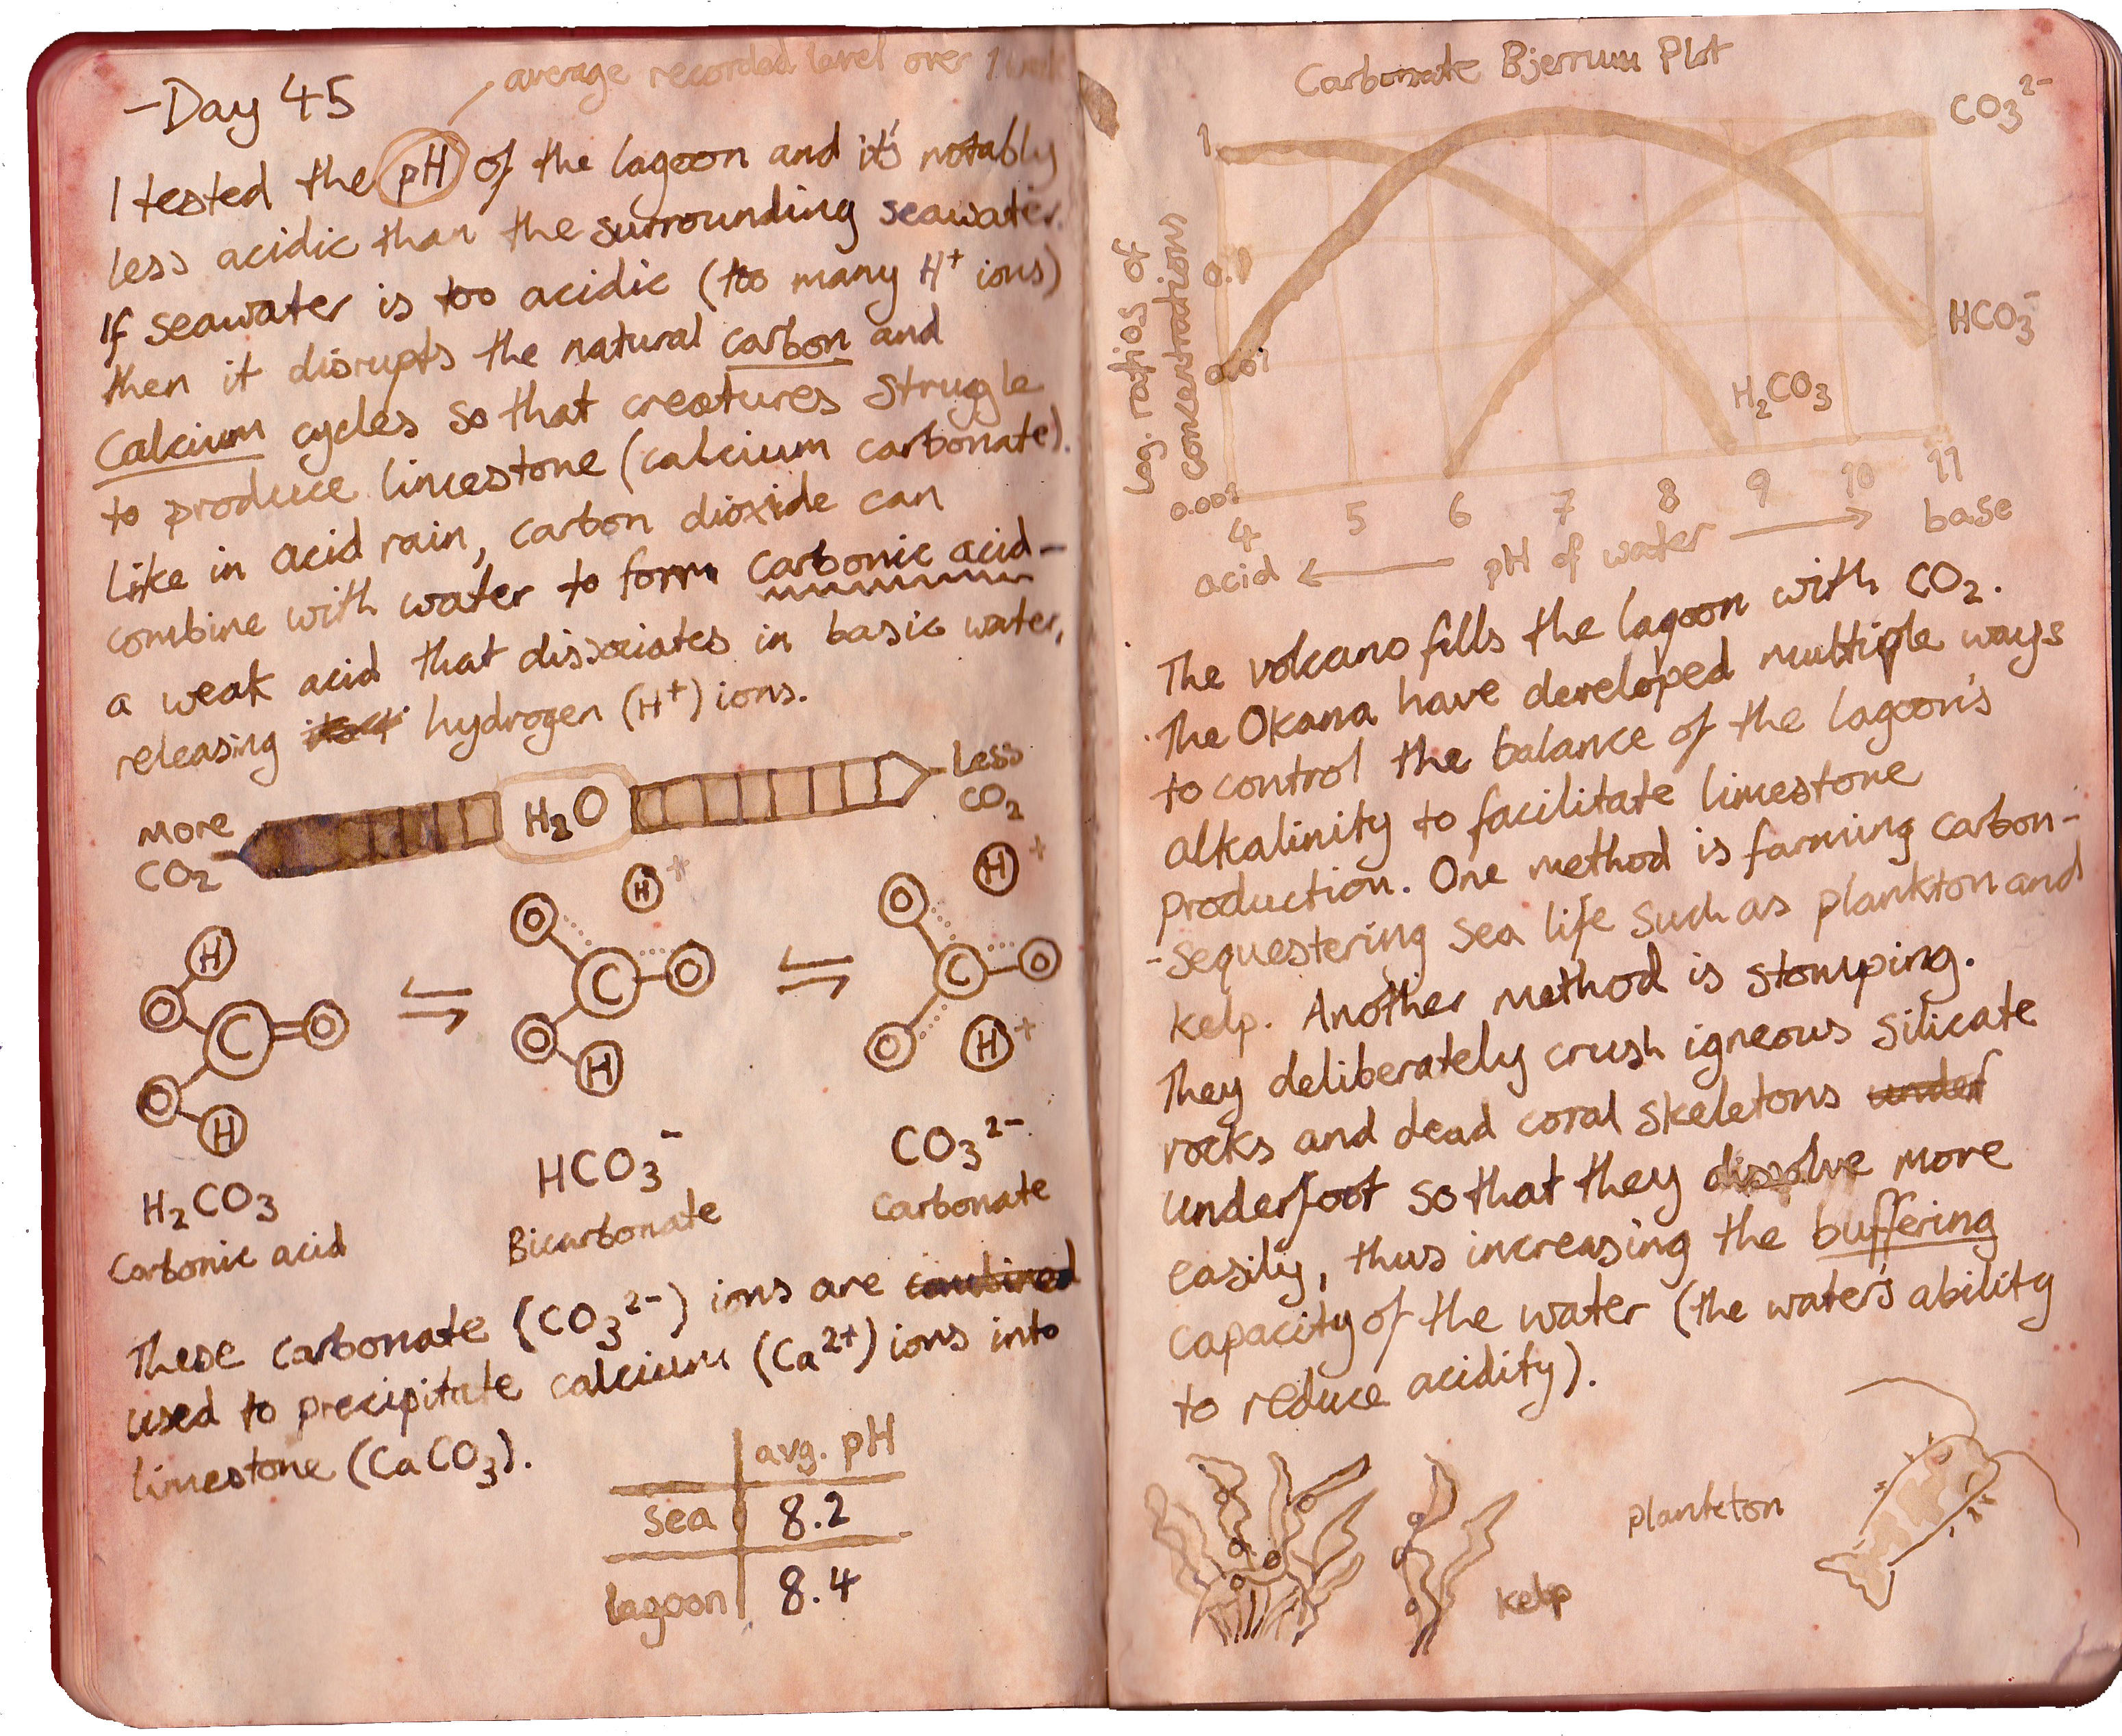 -Day 45
average recorded level over 1
I tested the pH of the lagoon and it's notably
less acidic than the surrounding seawater.
If seawater is too acidic (too many H⁺ ions)
then it disrupts the natural carbon and
calcium cycles so that creatures strugle
to produce limestone (calcium carbonate).
Like in acid rain, carbon dioxide can
combine with water to form carbonic acid-
a weak acid that dissociates in basic water,
releasing hydrogen (H⁺) ions.
More CO₂
H₂O
Less CO₂
H O C O O H
O H⁺ C O O H
O H⁺ C O O H⁺
H₂CO₃
Carbonic acid
HCO₃⁻
Bicarbonate
CO₃²⁻
Carbonate
These carbonate (CO₃²⁻) ions are combined
used to precipitate calcium (Ca²⁺) ions into
limestone (CaCO₃).
avg. pH
sea 8.2
lagoon 8.4
Carbonate Bjerrum Plot
CO₃²⁻
HCO₃⁻
H₂CO₃
Log. ratios of
concentrations
1
0.1
0.01
0.001
4 5 6 7 8 9 10 11
acid ← pH of water → base
The volcano fills the lagoon with CO₂.
The Okana have developed multiple ways
to control the balance of the lagoon's
alkalinity to facilitate limestone
production. One method is farming carbon-
-sequestering sea life such as plankton and
kelp. Another method is stomping.
They deliberately crush igneous silicate
rocks and dead coral skeletons under
underfoot so that they dissolve more
easily, thus increasing the buffering
capacity of the water (the water's ability
to reduce acidity).
kelp
plankton